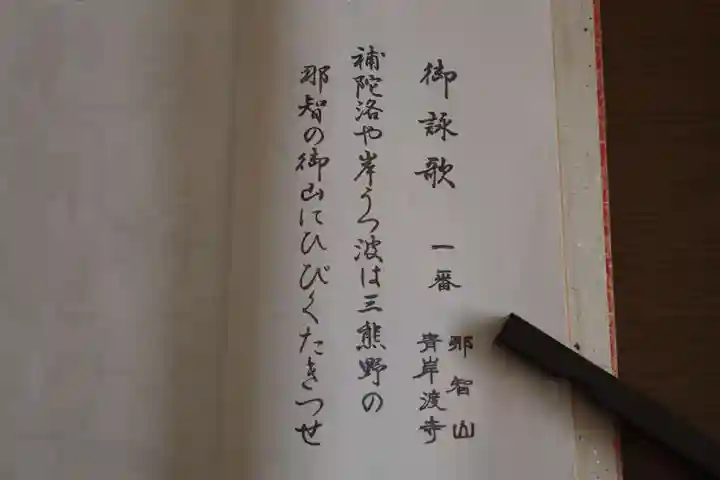 御詠歌 一番 那智山
青岸渡寺
補陀洛や岸うつ波は三熊野の
那智の御山にひびくたきつせ